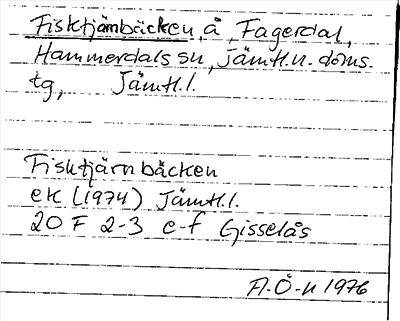 Fisktjärnbäcken, å, Fagerdal,
Hammerdals sn, Jämtl.n. doms.
tg, Jämtl.l.
Fisktjärnbäcken
ek (1974) Jämtl.l.
20 F 2-3 e-f Gisselås
A-Ö-n 1976